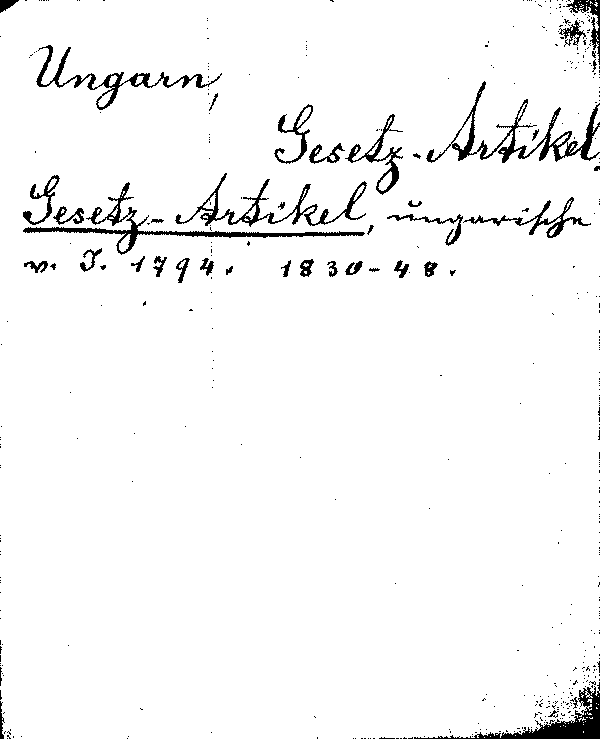 Ungarn,
Gesetz-Artikel.
Gesetz-Artikel, ungarische
v. J. 1794. 1830-48.